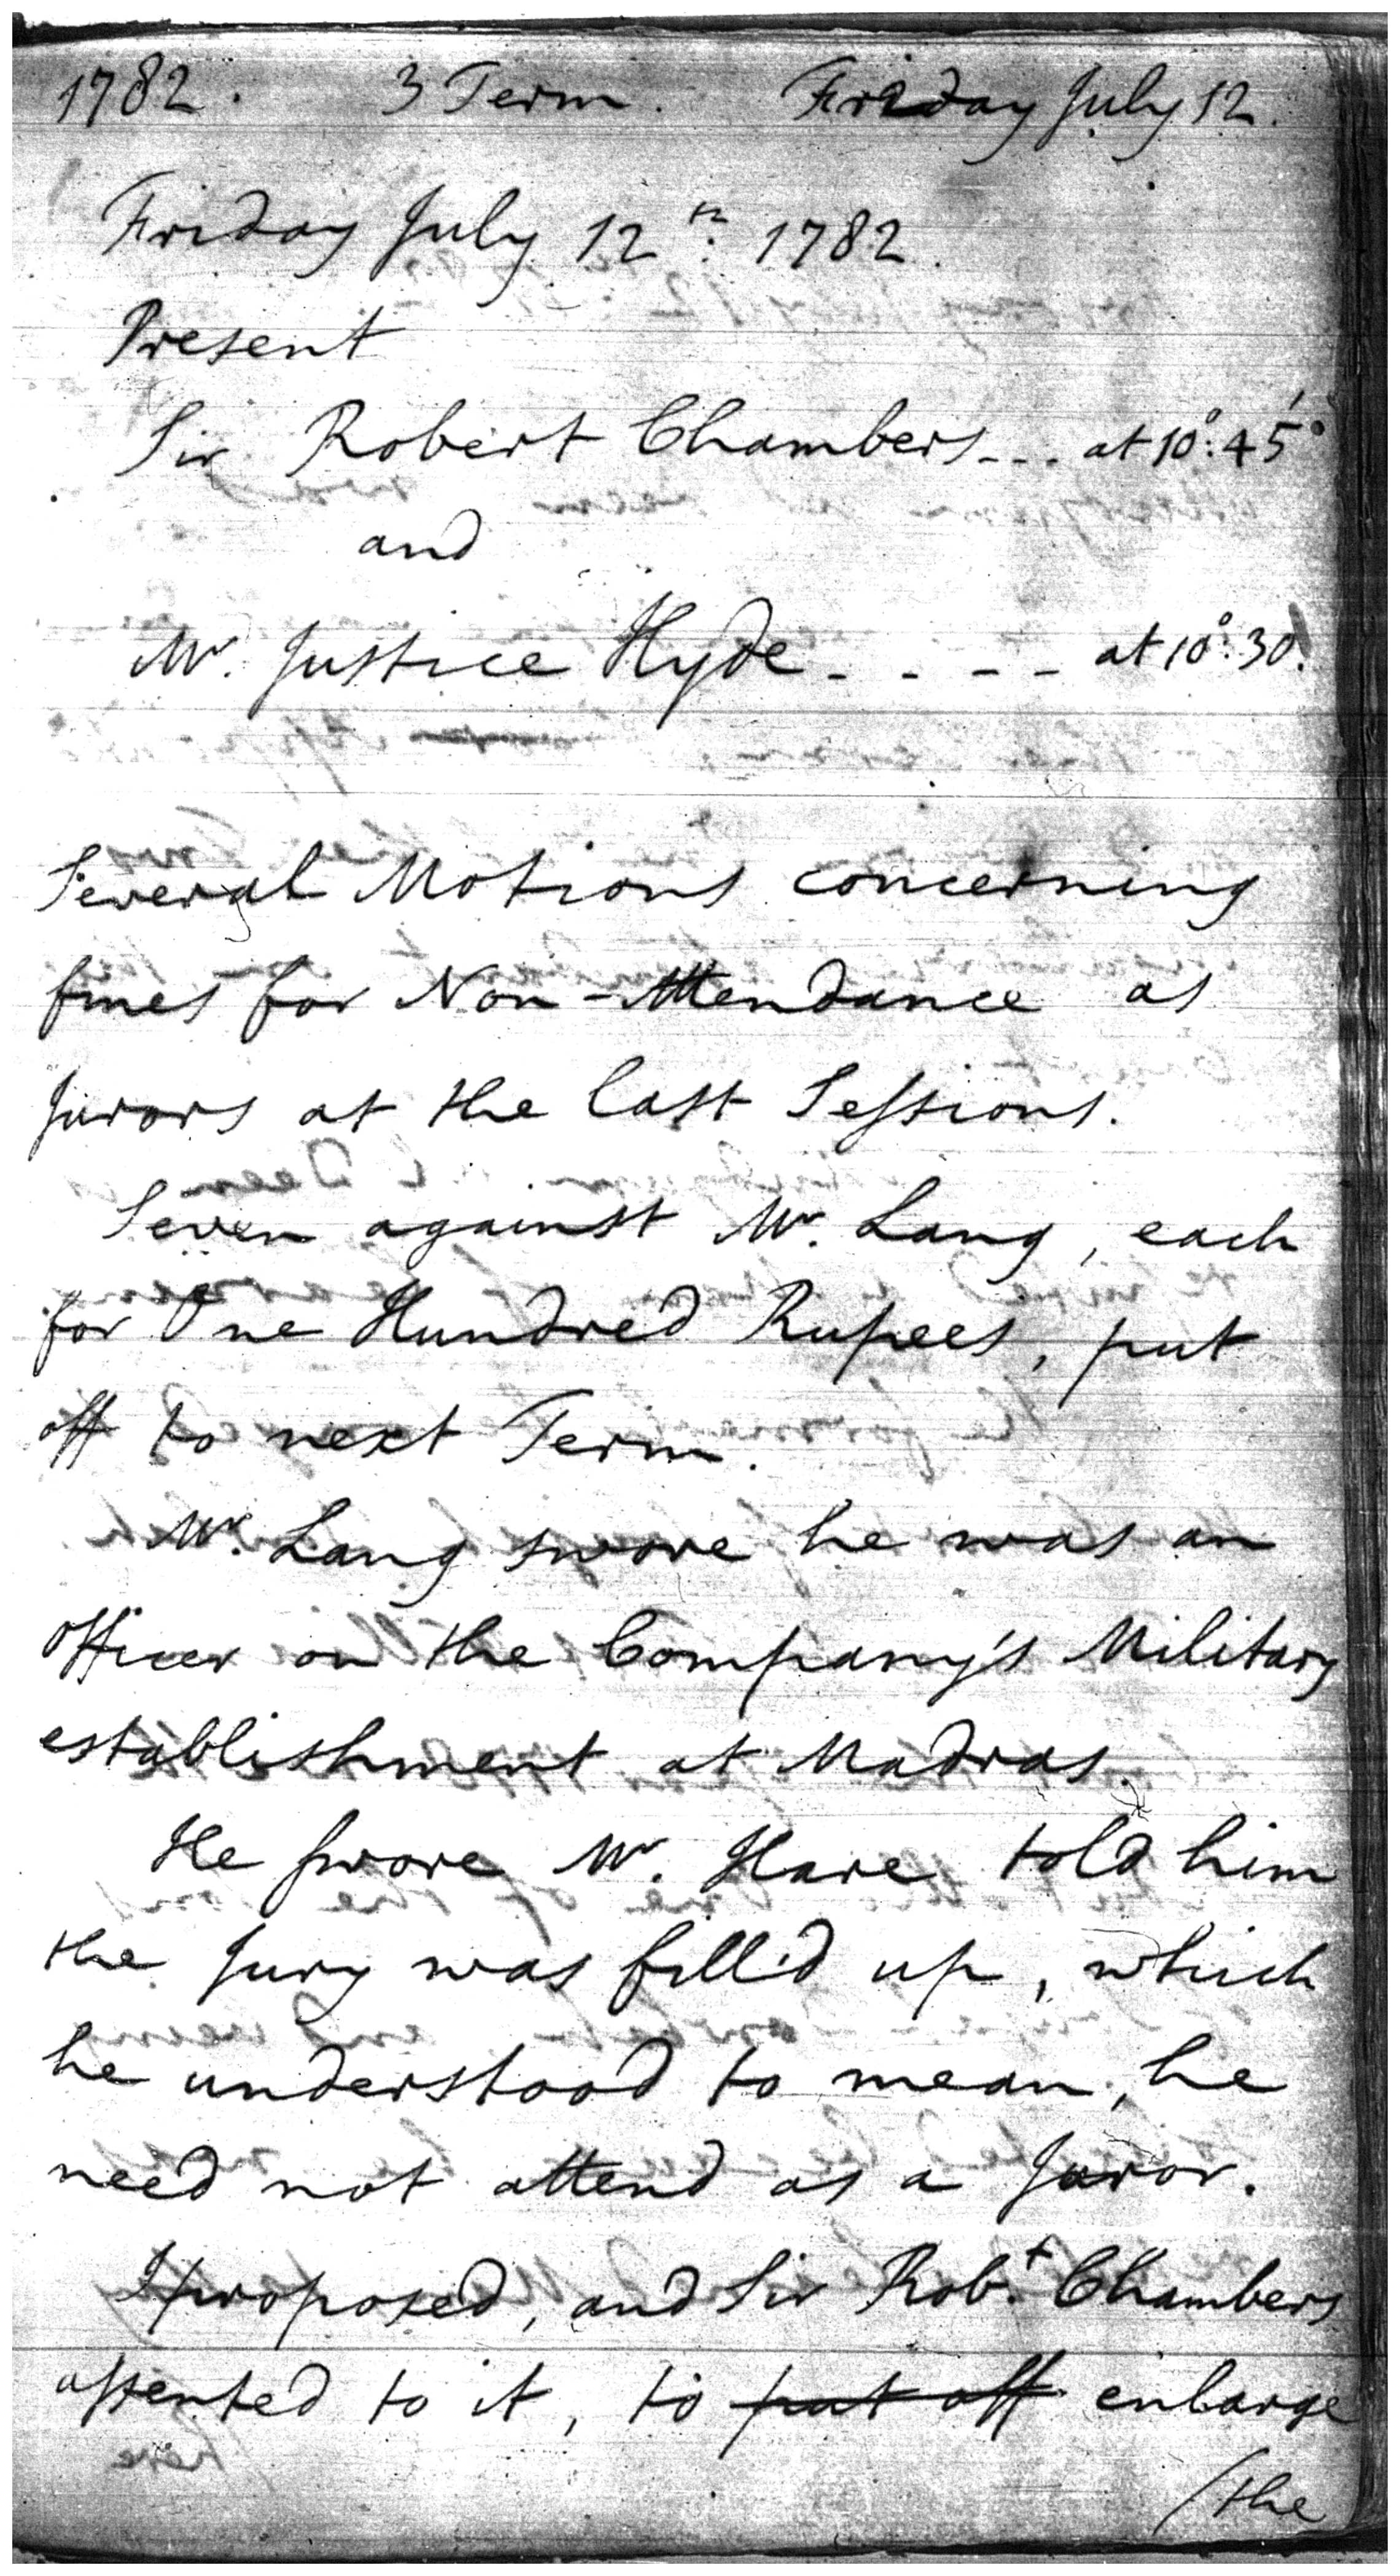 1782. 3 Term. Friday July 12.
Friday July 12th. 1782.
Present
Sir Robert Chambers --- at 10°:45'
and
Mr. Justice Hyde - - - - at 10°:30'.
Several Motions concerning
fines for Non-Attendance as
Jurors at the last Sessions.
Seven against Mr. Lang, each
for One Hundred Rupees, put
off to next Term.
Mr. Lang swore he was an
officer on the Company's Military
establishment at Madras.
He swore Mr. Hare told him
the Jury was fill'd up, which
he understood to mean, he
need not attend as a Juror.
I proposed, and Sir Robt. Chambers
assented to it, to put off enlarge
/the